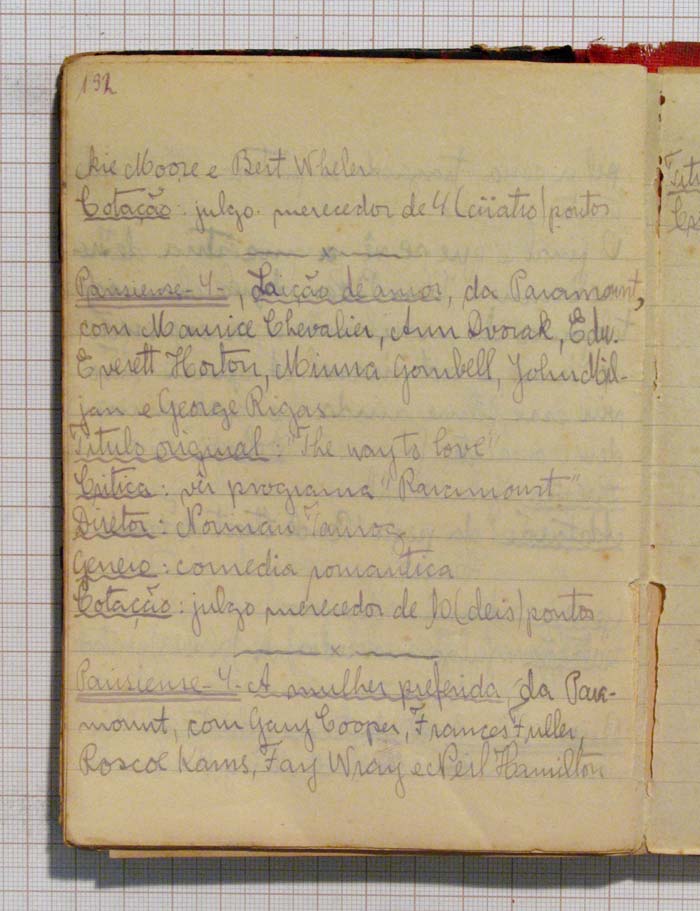 132
ckie Moore e Bert Wheler
Cotação: julgo merecedor de 4 (cüatro) pontos
x
Parisiense-4-, Laição de amor, da Paramount,
com Maurice Chevalier, Ann Dvorak, Edw.
Everett Horton, Minna Gombell, John Mil-
jan e George Rigas
Titulo original: "The way to love"
Critica: vêr programa "Paramount"
Diretor: Norman Taurog
Genero: comedia romantica
Cotação: julgo merecedor de 10 (deis) pontos
x
Parisiense-4- A mulher preferida da Para-
mount, com Gary Cooper, Frances Fuller,
Roscoe Karns, Fay Wray e Neil Hamilton
Titu